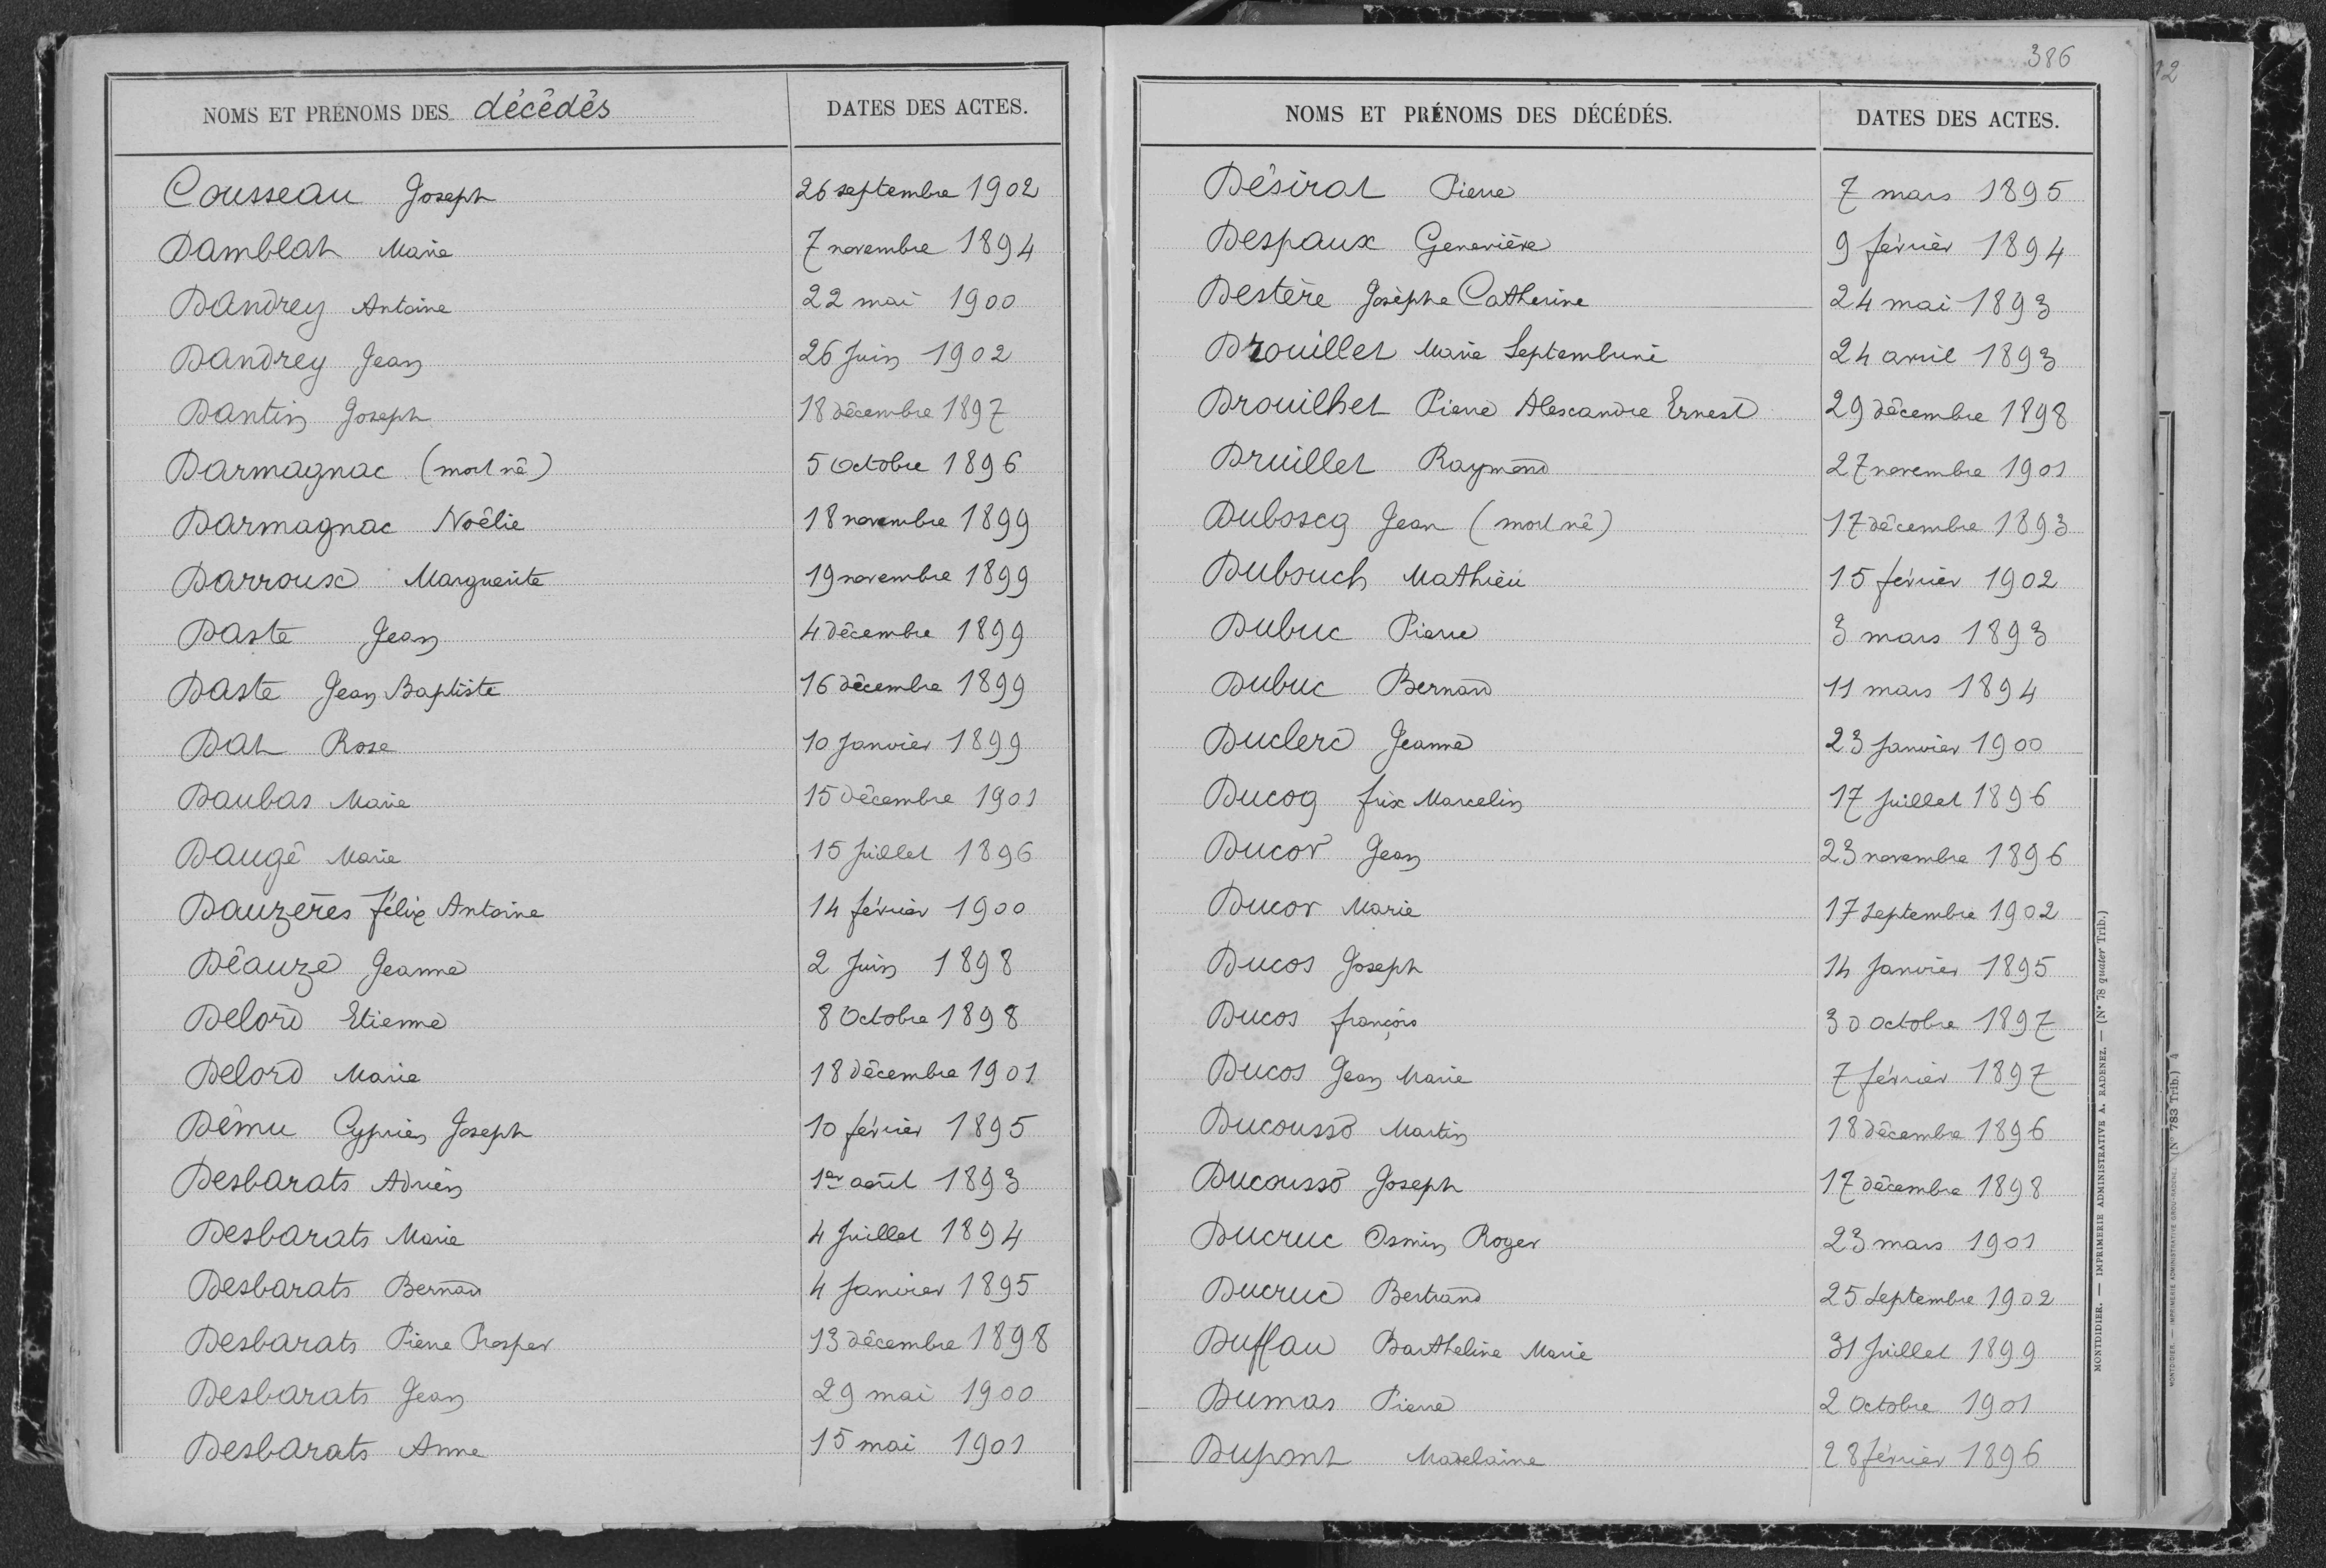 NOMS ET PRÉNOMS DES décédés DATES DES ACTES.
Cousseau Joseph 26 septembre 1902
Damblat Marie 7 novembre 1894
Dandrey Antoine 22 mai 1900
Dandrey Jean 26 Juin 1902
Dantin Joseph 18 décembre 1897
Darmagnac (mort né) 5 Octobre 1896
Darmagnac Noëlie 18 novembre 1899
Darroux Marguerite 19 novembre 1899
Daste Jean 4 décembre 1899
Daste Jean Baptiste 16 décembre 1899
Dat Rose 10 Janvier 1899
Daubas Marie 15 décembre 1901
Daugé Marie 15 Juillet 1896
Dauzères félix Antoine 14 février 1900
Déauze Jeanne 2 Juin 1898
Delord Etienne 8 Octobre 1898
Delord Marie 18 décembre 1901
Dému Cyprien Joseph 10 février 1895
Desbarats Adrien 1er août 1893
Desbarats Marie 4 Juillet 1894
Desbarats Bernard 4 Janvier 1895
Desbarats Pierre Prosper 13 décembre 1898
Desbarats Jean 29 mai 1900
Desbarats Anne 15 mai 1901
386
NOMS ET PRÉNOMS DES DÉCÉDÉS. DATES DES ACTES.
Désirat Pierre 7 mars 1895
Despaux Geneviève 9 février 1894
Destère Josèphe Catherine 24 mai 1893
Drouillet Marie Septembrine 24 avril 1893
Drouilhet Pierre Alexandre Ernest 29 décembre 1898
Druillet Raymond 27 novembre 1901
Duboscq Jean (mort né) 17 décembre 1893
Dubouch Mathieu 15 février 1902
Dubuc Pierre 3 mars 1893
Dubuc Bernard 11 mars 1894
Duclerc Jeanne 23 Janvier 1900
Ducog frix Marcelin 17 Juillet 1896
Ducor Jean 23 novembre 1896
Ducor Marie 17 Septembre 1902
Ducos Joseph 14 Janvier 1895
Ducos françois 30 octobre 1897
Ducos Jean Marie 7 février 1897
Ducousso Martin 18 décembre 1896
Ducousso Joseph 17 décembre 1898
Ducruc Osmin Roger 23 mars 1901
Ducruc Bertrand 25 Septembre 1902
Duffau Bartheline Marie 31 Juillet 1899
Dumas Pierre 2 Octobre 1901
Dupont Madelaine 28 février 1896
MONTDIDIER. — IMPRIMERIE ADMINISTRATIVE A. RADENEZ. — (N° 78 quater Trib.)
12
MONTDIDIER. — IMPRIMERIE ADMINISTRATIVE GROU-RADENEZ (N° 783 Trib.) 4